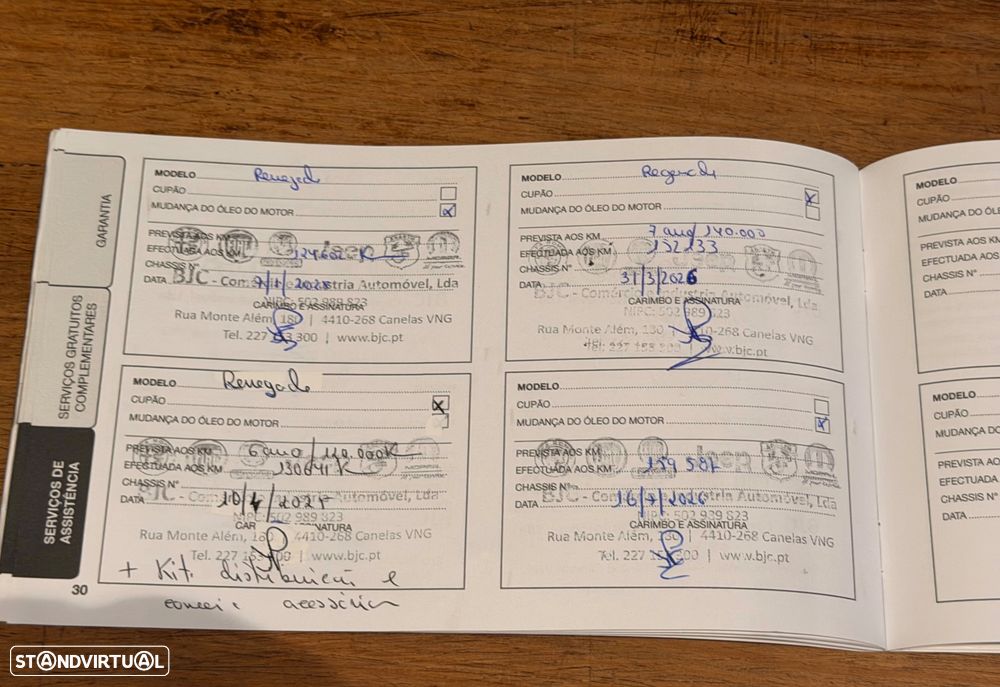 GARANTIA
SERVIÇOS GRATUITOS
COMPLEMENTARES
SERVIÇOS DE
ASSISTÊNCIA
MODELO Renegade
CUPÃO
MUDANÇA DO ÓLEO DO MOTOR x
PREVISTA AOS KM
EFECTUADA AOS KM
CHASSIS Nº
DATA
BJC - Comércio e Industria Automóvel, Lda
CARIMBO E ASSINATURA
NIPC: 502 989 823
Rua Monte Além, 180 | 4410-268 Canelas VNG
Tel. 227 153 300 | www.bjc.pt
MODELO
CUPÃO x
MUDANÇA DO ÓLEO DO MOTOR
PREVISTA AOS KM 7 ano/140.000
EFECTUADA AOS KM 132233
CHASSIS Nº
DATA 31/3/2026
BJC - Comércio e Industria Automóvel, Lda
CARIMBO E ASSINATURA
NIPC: 502 989 823
Rua Monte Além, 180 | 4410-268 Canelas VNG
Tel. 227 153 300 | www.bjc.pt
MODELO Renegade
CUPÃO x
MUDANÇA DO ÓLEO DO MOTOR
PREVISTA AOS KM 6 ano/120.000K
EFECTUADA AOS KM 130641 K
CHASSIS Nº
DATA
BJC - Comércio e Industria Automóvel, Lda
NIPC: 502 989 823
CAR NATURA
Rua Monte Além, 180 | 4410-268 Canelas VNG
Tel. 227 153 300 | www.bjc.pt
+ Kit distribuição e
correia acessórios
MODELO
CUPÃO
MUDANÇA DO ÓLEO DO MOTOR x
PREVISTA AOS KM
EFECTUADA AOS KM
CHASSIS Nº
DATA
BJC - Comércio e Industria Automóvel, Lda
CARIMBO E ASSINATURA
NIPC: 502 989 823
Rua Monte Além, 180 | 4410-268 Canelas VNG
Tel. 227 153 300 | www.bjc.pt
30
MODELO
CUPÃO
MUDANÇA DO ÓL
PREVISTA AOS KM
EFECTUADA AOS
CHASSIS Nº
DATA
MODELO
CUPÃO
MUDANÇA DO
PREVISTA AO
EFECTUADA
CHASSIS Nº
DATA
STANDVIRTUAL